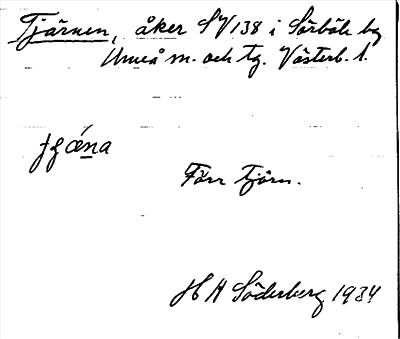 Tjärnen, åker SV138 i Sörböle by
Umeå m. och tg. Västerb. l.
Förr tjärn.
H A Söderberg 1934